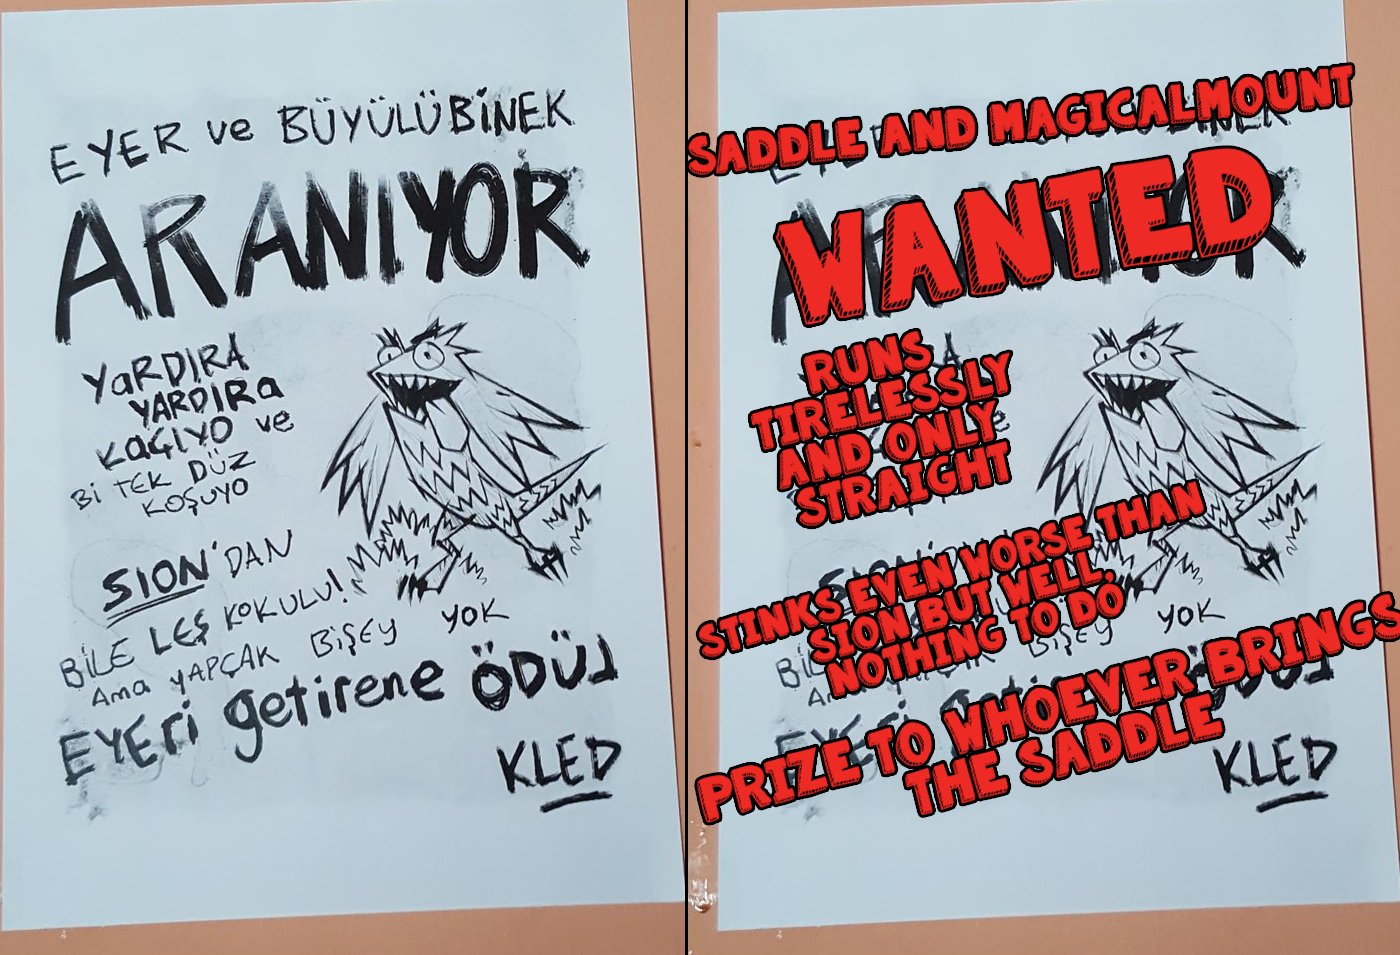 EYER ve BÜYÜLÜ BİNEK
ARANIYOR
YARDIRA
YARDIRA
KAÇIYO ve
Bi TEK DÜZ
KOŞUYO
SION'DAN
BİLE LEŞ KOKULU!
Ama YAPÇAK BİŞEY YOK
EYERi getirene ÖDÜL
KLED
SADDLE AND MAGICALMOUNT
WANTED
RUNS
TIRELESSLY
AND ONLY
STRAIGHT
STINKS EVEN WORSE THAN
SION BUT WELL.
NOTHING TO DO
YOK
PRIZE TO WHOEVER BRINGS
THE SADDLE
KLED